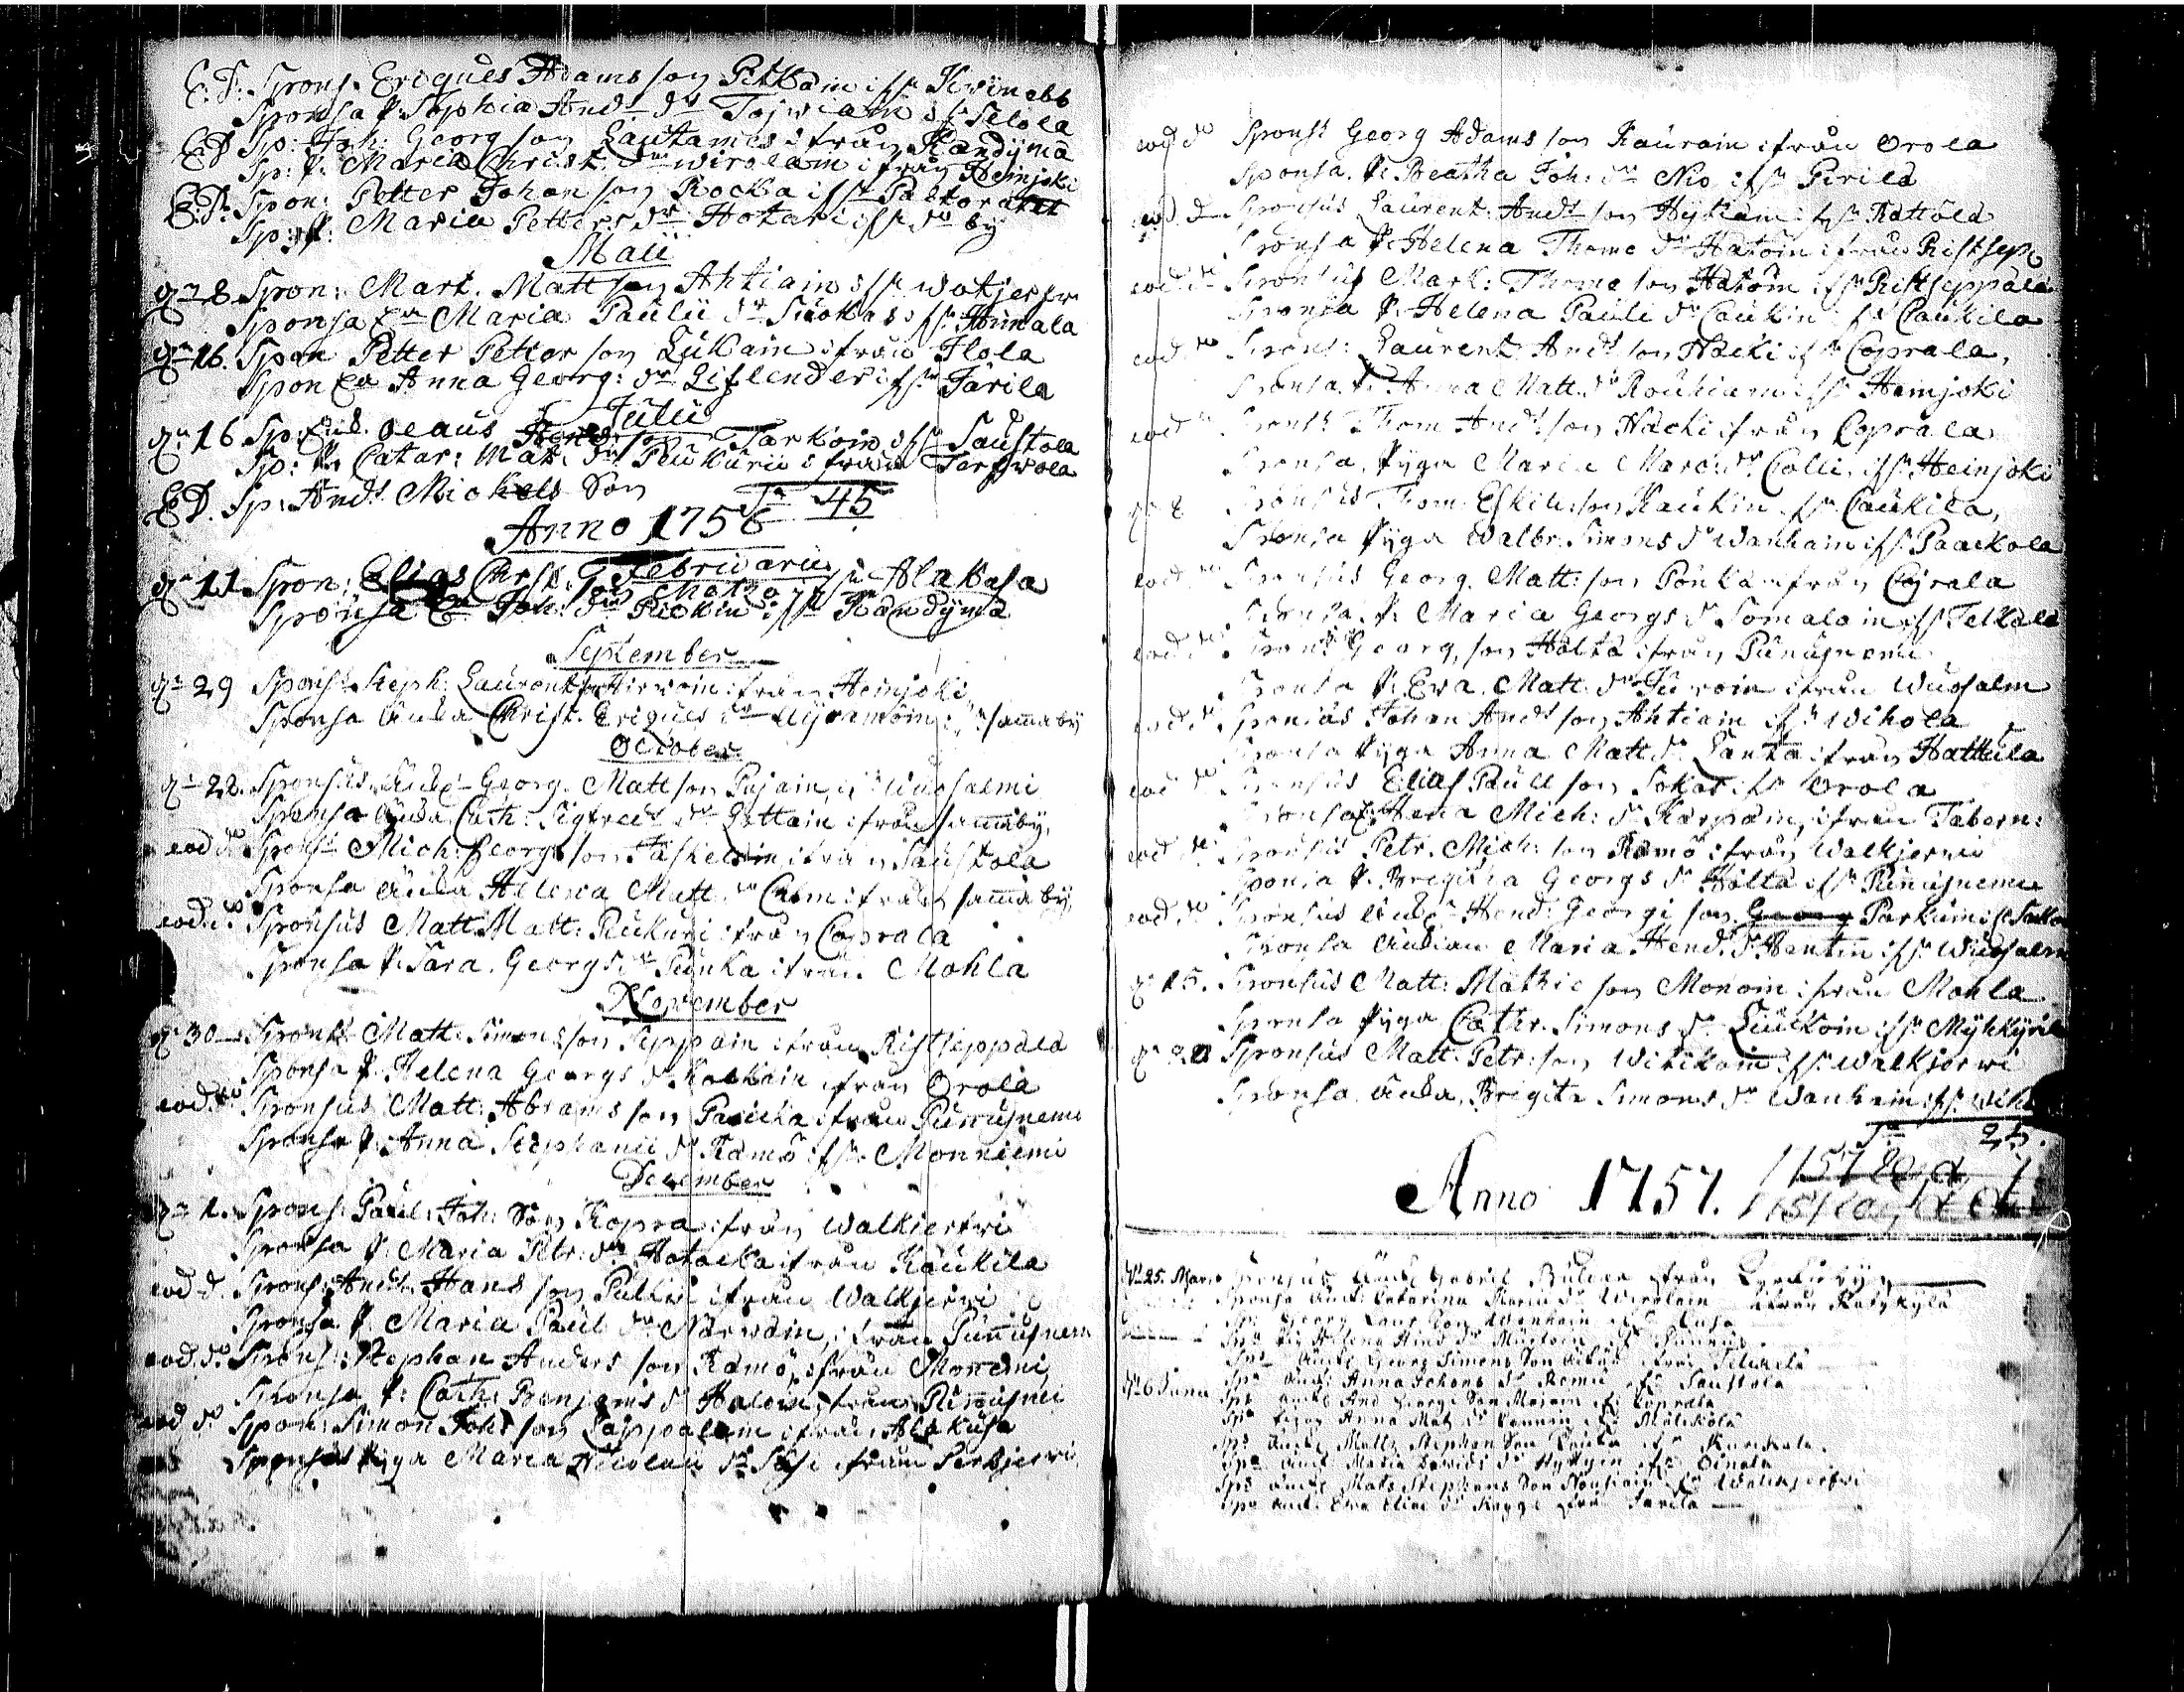 E.D. Spons. Ericques Adams son Pitkäin if:n Kwinobb
Sponsa P. Sophia And: dr Tojwiain if:n Telola
E.D. Sp: Joh: Georg son Lautames ifrån Kandyma
Sp: P: Maria Christ: dr wirolain ifrån Heinjoki
E.D. Spon: Petter Johan son Rocka if:n Pastoratet
Sp: P: Maria Petters dr Hotari if:n do by
Maii
dn 8 Spon: Mart. Matt son Ahtiain if:n wotjerfw
Sponsa Ea Maria Paulii dr Suokas if:n Hinnala
dn 16. Spon Petter Petter son Lukain ifrån Ilola
Spon Ea Anna Georg: dr Liflender if:n Järilä
Julii
dn 16 Sp: Enk. Olaus son Tarkoin if:n Saustola
Sp: P. Catar: Mat: dr Pukurii ifrån
E.D. Sp: And: Mickels Son
Sa 45
Anno 1756
Februarii
dn 11 Spon: Elias Christ: son Matho if:n Alakusa
Sponsa Ea Joh: dr Pickin if:n Kandyma
September
dn 29 Spons: Steph: Laurent son Hirwoin ifrån Heinjoki
Sponsa änka Christ. Ericques dr samma by
October
dn 22. Sponsus änkl: Georg. Matt son Pujain, if:n Wuosalmi
Sponsa änka Cath: Sigfreds dr Lattain ifrån samma by,
eod do Spons: Mich: Georg son Jäskeläin ifrån Saustola
Sponsa änka Helena Matt: dr Colmi ifrån samma by,
eod. do Sponsus Matt: Matt: Pukuri ifrån Coprala
Sponsa P. Sara. Georgs dr Punka ifrån Mohla
November
dn 30 Spons: Matt: Simons son Seppäin ifrån Ristseppälä
Sponsa P. Helena Georgs dr ifrån Orola
eod. do Sponsus Matt: Abrams son Paricka ifrån Punnusnemi
Sponsa P. Anna Stephanii dr Rämö if:n Monniemi
December
dn 1. Spons: Paul: Joh: Son Kopra ifrån Walkjerfwi
Sponsa P. Maria Petr: dr Hotacka ifrån Kaukila
eod d. Spons: And: Hans son Pulkin ifrån Walkjerfwi
Sponsa P. Maria Paul: dr Närwäin, ifrån Punnusnem
eod. do Spons: Stephan Anders son Rämö, ifrån Monnemi
Sponsa P: Cath: Benjams dr Haloin ifrån Punnusnei
eod do Spons: Simon Joh: son Lappalain ifrån Alakusa
Sponsa Pyga Maria Nicolaii dr ifrån Perkjerwi
eod do Spons: Georg Adams son Kaurain ifrån Orola
Sponsa. P: Beatha Joh: dr Nio if:n Pirilä
eod. d Sponsus Laurent: And: son Hykiäin if:n Rattola
Sponsa P. Helena Thome dr Hatoin ifrån Ristsep
eod do Sponsus Mark: Thome son Hatoin if:n Ristseppälä
Sponsa P. Helena Pauli dr Caukin if:n Caukila
eod. do Spons: Laurent And: son Häcki if:n Coprala,
Sponsa P. Anna Matt: dr Roukiain if:n Heinjoki
eod do Spons: Thom And: son Häcki ifrån Coprala
Sponsa, Pyga Maria Marc: dr Colli, if:n Heinjoki
dn 8 Sponsus Thom. Eskils son Kaukin if:n Caukila,
Sponsa Pyga Walbr. Simons dr Wanhain if:n Paackola
eod do Sponsus Georg. Matt: son Ponkä ifrån Cyrala
Sponsa. P. Maria Georgs dr Somalain if:n Telkälä
eod do Spons: Georg, son Holta ifrån Punusnemi
Sponsa P. Ewa. Matt: dr ifrån Wuosalm
eod do Sponsus Johan And: son Ahtiain if:n Wihola
Sponsa Pyga Anna Matt: dr Lanta ifrån Hattula
eod do Sponsus Elias Paull son Sokas if:n Orola
Sponsa Hena Mich: dr Karpäin, ifrån Tabern:
eod do Sponsus Petr. Mich: son Rämö ifrån Walkjerwi
Sponsa P. Bregitta Georgs dr Hålta if:n Punusnemi
eod do Sponsus änkl: Hend: Georgi son Parkuin if:n
Sponsa änkian Maria Hend: dr Hentin if:n Wuosalm
dn 15. Sponsus Matt: Mathie son Monoin ifrån Mohla
Sponsa Pyga Cathr. Simons dr Liuckoin if:n Myhkyrilä
dn 20 Sponsus Matt: Petr: son Witikain if:n Walkjerwi
Sponsa, änka, Brigita Simons dr Wanhain if:n Wih
Sa 25.
Anno 1757.
dn 25. Marti Sponsus Änkl: Gabriel ifrån
Sponsa änk: Catarina dr Wirolain ifrån
Sps Georg Lars Son
Spa dr
Sps änkl Georg Simons Son ifrån
dn 6 Junii Spa änk: Anna Johans dr Remu if:n Saustola
Sps änkl And Georgi Son if:n Coprala
Spa Pigan Anna Mat: dr if:n Mälikölä
Sps änkl Matts Stephan Son if:n
Spa änk: Maria Davids dr if:n
Sps änkl Mats Stephans Son if:n Walkjerfwi
Spa änk: Ewa Elias dr ifrån Järilä